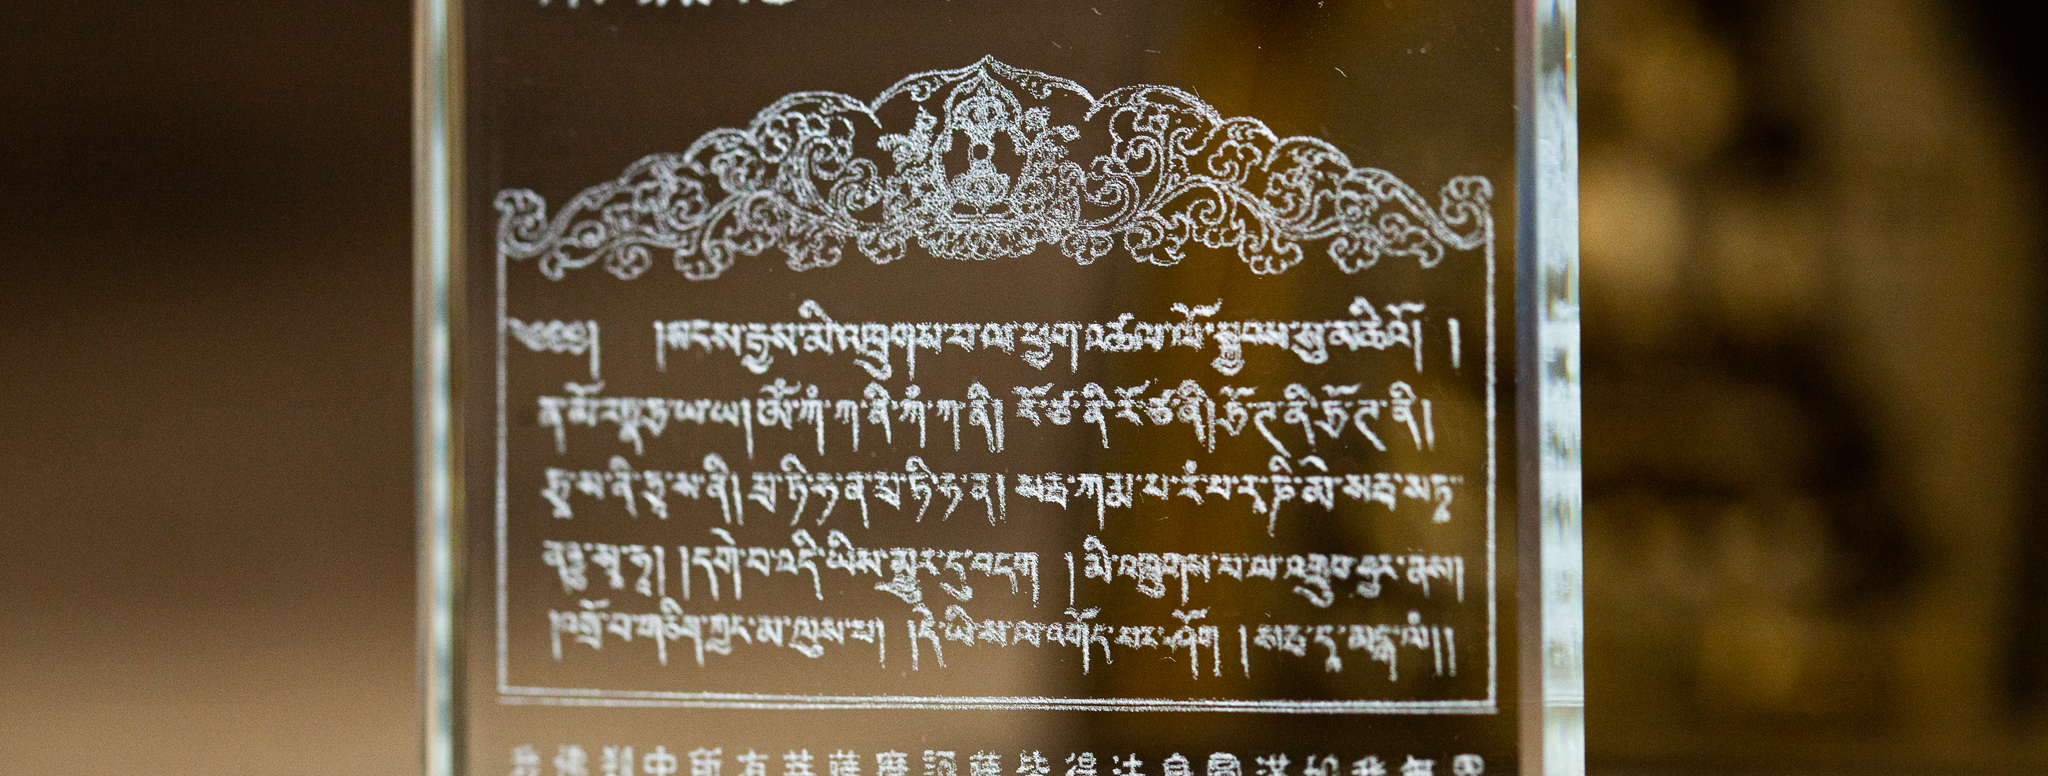 ༄༅༅། །སངས་རྒྱས་མི་འཁྲུགས་པ་ལ་ཕྱག་འཚལ་ལོ་སྐྱབས་སུ་མཆིའོ། །
ན་མོ་རཏྣ་ཏྲ་ཡཱ་ཡ། ཨོཾ་ཀཾ་ཀ་ནི་ཀཾ་ཀ་ནི། རོ་ཙ་ནི་རོ་ཙ་ནི། ཏྲོ་ཊ་ནི་ཏྲོ་ཊ་ནི།
ཏྲཱ་ས་ནི་ཏྲཱ་ས་ནི། པྲ་ཏི་ཧ་ན་པྲ་ཏི་ཧ་ན། སརྦ་ཀརྨ་པ་རཾ་པ་རཱ་ཎི་མེ་སརྦ་སཏྭ་
ནཱཉྩ་སྭཱ་ཧཱ། །དགེ་བ་འདི་ཡིས་མྱུར་དུ་བདག །མི་འཁྲུགས་པ་ལ་འགྲུབ་གྱུར་ནས།
།འགྲོ་བ་གཅིག་ཀྱང་མ་ལུས་པ། །དེ་ཡི་ས་ལ་འགོད་པར་ཤོག །སརྦ་དཱ་མངྒ་ལཾ།།
佛刹中所有菩薩摩訶薩皆得法身圓滿如我無